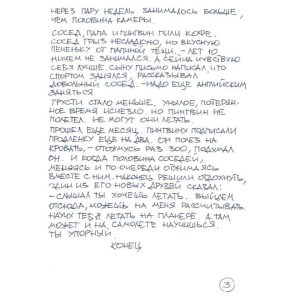 ЧЕРЕЗ ПАРУ НЕДЕЛЬ ЗАНИМАЛОСЬ БОЛЬШЕ,
ЧЕМ ПОЛОВИНА КАМЕРЫ.
СОСЕД, ПАПА И ПИНГВИН ПИЛИ КОФЕ.
СОСЕД ГРЫЗ НЕСЛАДКУЮ, НО ВКУСНУЮ
ПЕЧЕНЬКУ ОТ ПАПИНОЙ ТЁЩИ. - ЛЕТ 10
НИЧЕМ НЕ ЗАНИМАЛСЯ, А СЕЙЧАС ЧУВСТВУЮ
СЕБЯ ЛУЧШЕ. СЫНУ ПИСЬМО НАПИСАЛ ЧТО
СПОРТОМ ЗАНЯЛСЯ, РАССКАЗЫВАЛ
ДОВОЛЬНЫЙ СОСЕД. - НАДО ЕЩЁ АНГЛИЙСКИМ
ЗАНЯТЬСЯ.
ГРУСТИ СТАЛО МЕНЬШЕ, УНЫЛОЕ, ПОТЕРЯН-
НОЕ ВРЕМЯ ИСЧЕЗЛО. НО ПИНГВИН НЕ
ПОЛЕТЕЛ. НЕ МОГУТ ОНИ ЛЕТАТЬ.
ПРОШЁЛ ЕЩЁ МЕСЯЦ. ПИНГВИНУ ПОДПИСАЛИ
ПРОДЛЁНКУ ЕЩЁ НА ДВА. ОН ПОЛЕЗ НА
КРОВАТЬ, - ОТОЖМУСЬ РАЗ 300, ПОДУМАЛ
ОН. И КОГДА ПОЛОВИНА СОСЕДЕЙ,
МЕНЯЯСЬ И ПО ОЧЕРЕДИ ОТЖИМАЯСЬ
ВМЕСТЕ С НИМ, НАКОНЕЦ РЕШИЛИ ОТДОХНУТЬ,
ОДИН ИЗ ЕГО НОВЫХ ДРУЗЕЙ СКАЗАЛ:
- СЛЫШАЛ ТЫ ХОЧЕШЬ ЛЕТАТЬ. ВЫЙДЕМ
ОТСЮДА, МОЖЕШЬ НА МЕНЯ РАССЧИТЫВАТЬ.
НАУЧУ ТЕБЯ ЛЕТАТЬ НА ПЛАНЕРЕ. А ТАМ
МОЖЕТ И НА САМОЛЁТЕ НАУЧИШЬСЯ.
ТЫ УПОРНЫЙ.
КОНЕЦ
3